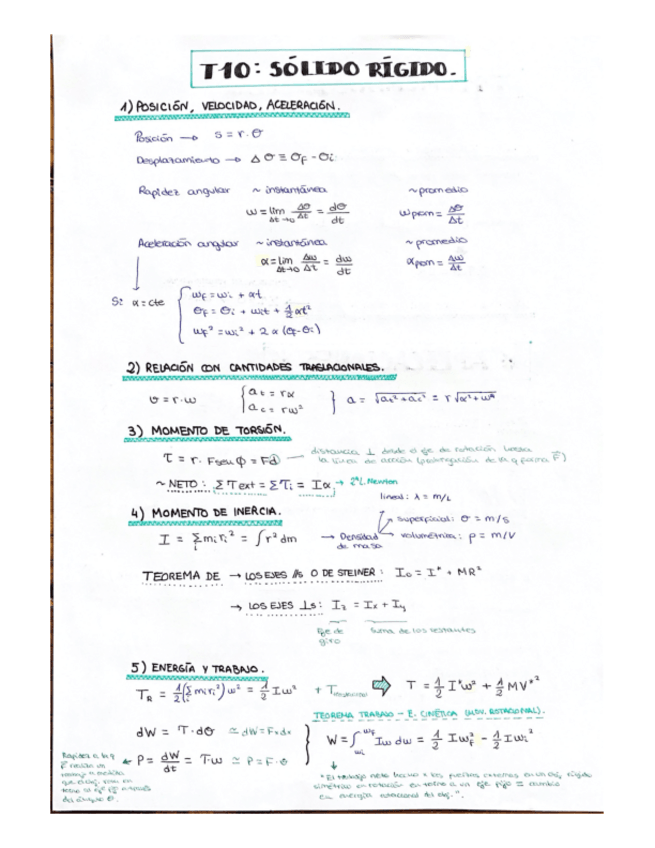 T10: SÓLIDO RÍGIDO.
1) POSICIÓN, VELOCIDAD, ACELERACIÓN.
Posición → s = r·θ
Desplazamiento → Δθ ≡ θf - θi
Rapidez angular ~ instantánea ~ promedio
ω = lim Δt→0 Δθ/Δt = dθ/dt ωprom = Δθ/Δt
Aceleración angular ~ instantánea ~ promedio
α = lim Δt→0 Δω/Δt = dω/dt αprom = Δω/Δt
Si α = cte { ωf = ωi + αt
θf = θi + ωit + 1/2 αt²
ωf² = ωi² + 2α(θf-θi)
2) RELACIÓN CON CANTIDADES TRASLACIONALES.
v = r·ω { at = rα
ac = rω² } a = √at²+ac² = r√α²+ω⁴
3) MOMENTO DE TORSIÓN.
τ = r·Fsenϕ = Fd — distancia ⊥ desde el eje de rotación hasta
la línea de acción (prolongación de la q forma F)
~ NETO: Στext = Στi = Iα → 2ªL.Newton
4) MOMENTO DE INERCIA.
lineal: λ = m/L
superficial: σ = m/S
I = Σi miri² = ∫r²dm → Densidad de masa volumétrica: ρ = m/V
TEOREMA DE → LOS EJES //s O DE STEINER: I₀ = I* + MR²
→ LOS EJES ⊥s: Iz = Ix + Iy
Eje de giro suma de los restantes
5) ENERGÍA Y TRABAJO.
TR = 1/2(Σi miri²)ω² = 1/2 Iω² + T ⇒ T = 1/2 I*ω² + 1/2 MV*²
TEOREMA TRABAJO - E. CINÉTICA (MOV. ROTACIONAL).
dW = τ·dθ ≃ dW = F×dx
W = ∫ωi ωf Iω dω = 1/2 Iωf² - 1/2 Iωi²
P = dW/dt = τ·ω ≃ P = F·v
Rapidez a la q
F realiza un
trabajo a medida
que el obj. rota en
torno al eje a través
del ángulo θ.
"El trabajo neto hecho x las fuerzas externas en un obj. rígido
simétrico en rotación en torno a un eje fijo = cambio
en energía rotacional del obj.".